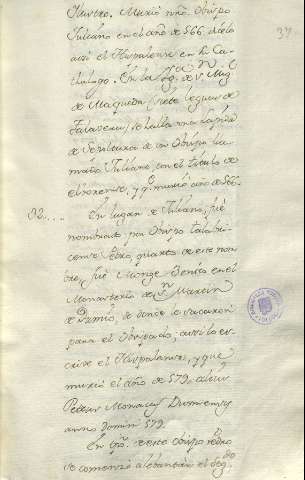 nuestro. Murió nřo. Obispo
Juliano en el año de 566. dicelo
assi el Hispalense en su Ca-
thalogo. En la Yg.ª de S.
de Maqueda (siete leguas de
Talavera) se halla una lapida
de Sepultura de un Obispo lla-
mado Juliano con el titulo de
elborense, y q. murió año de 566.
82.... En lugar de Juliano, fué
nombrado por Obispo talabri-
cense Pedro quarto de este nom-
bre, fué Monge Benito en el
Monasterio de Sn Martin
de Dumio, de donde le sacaron
para el Obispado, assi lo es-
crive el Hispalense, y que
murió el año de 579.
Petrus Monacus Dumiensis
anno Domini 579.
En tpo. de este obispo Pedro
se comenzó a lebantar el
37